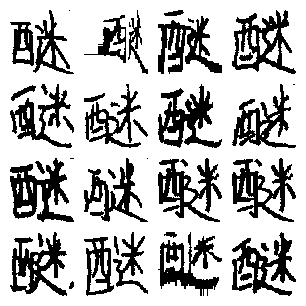 醚醚醚醚
醚醚醚醚
醚醚醚醚
醚醚醚醚